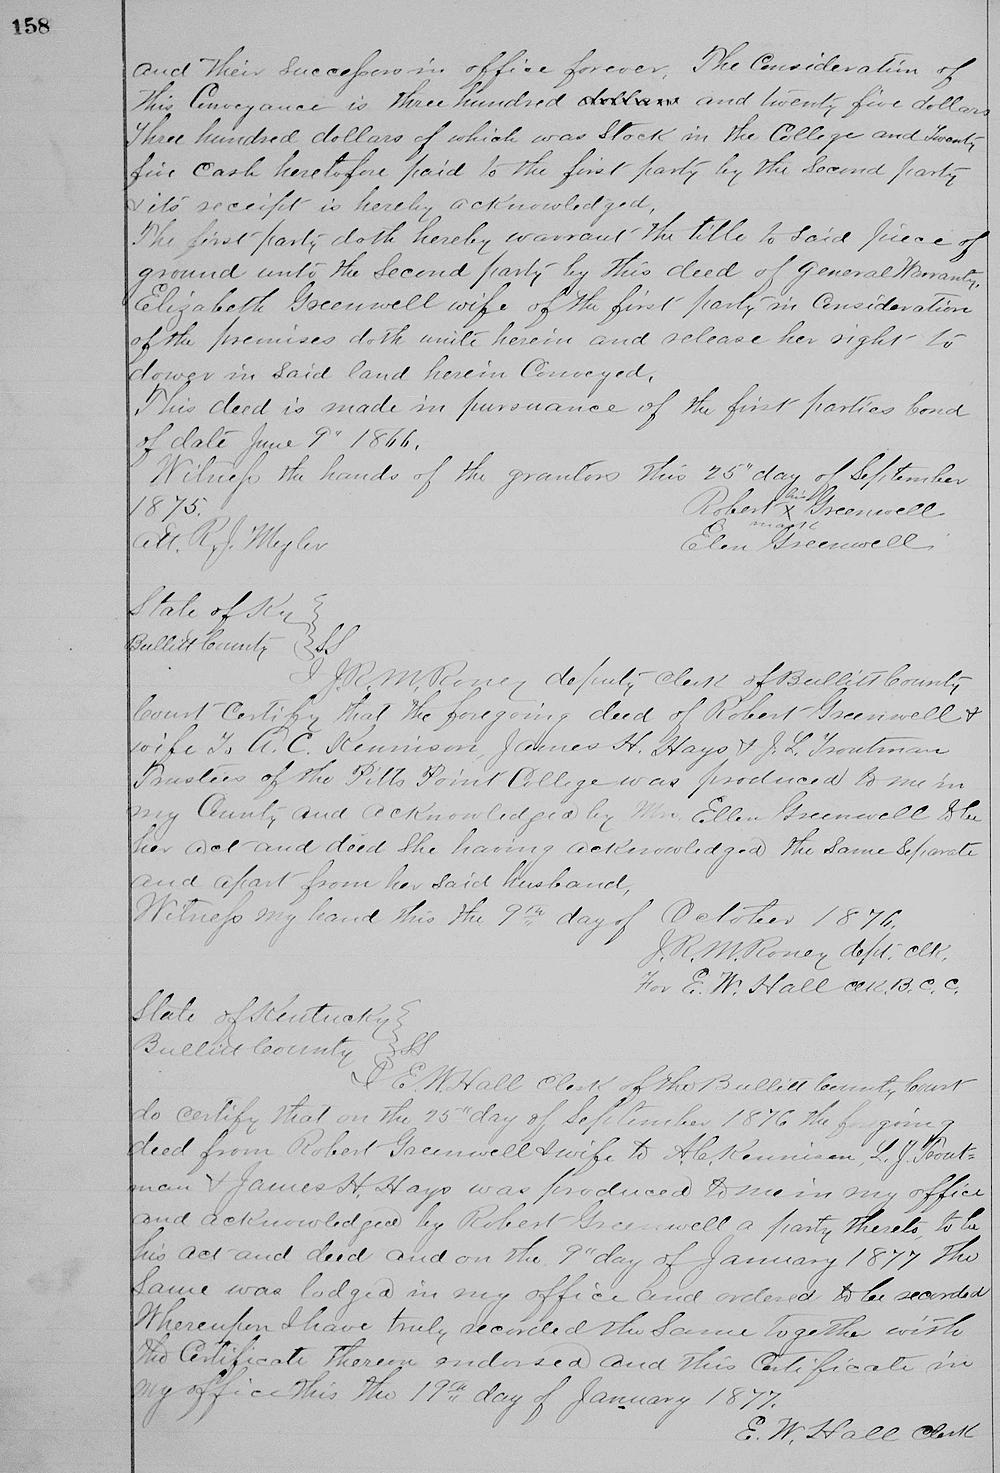 158
and their successors in office forever, The Consideration of
this Conveyance is three hundred dollars and twenty five dollars
Three hundred dollars of which was Stock in the College and Twenty
five Cash heretofore paid to the first party by the Second party
& its receipt is hereby acknowledged,
The first party doth hereby warrant the title to said piece of
ground unto the Second party by this deed of General Warranty,
Elizabeth Greenwell wife of the first party in Consideration
of the premises doth unite herein and release her right to
dower in said land herein Conveyed,
This deed is made in pursuance of the first parties bond
of date June 9" 1866,
Witness the hands of the grantors this 25" day of September
1875.
Robert his X mark Greenwell
Att. R. J. Meyler
Elen Greenwell
State of Ky }
Bullitt County } SS
I J. R. M. Roney deputy clerk of Bullitt County
Court Certify that the foregoing deed of Robert Greenwell &
wife To A. C. Kennison, James H. Hays & J. L. Troutman
Trustees of the Pitts Point College was produced to me in
my County and acknowledged by Mrs. Ellen Greenwell to be
her act and deed She having acknowledged the same Separate
and apart from her said husband,
Witness my hand this the 9th day of October 1876,
J. R. M. Roney dept. clk.
For E. W. Hall clk. B. C. C.
State of Kentucky }
Bullitt County } SS
I E. W. Hall Clerk of the Bullitt County Court
do certify that on the 25" day of September 1876 the forgoing
deed from Robert Greenwell & wife to A. C. Kennison, L. J. Trout=
man & James H. Hays was produced to me in my office
and acknowledged by Robert Greenwell a party thereto, to be
his act and deed and on the 9" day of January 1877 the
Same was lodged in my office and ordered to be recorded
Whereupon I have truly recorded the Same together with
the Certificate thereon endorsed and this Certificate in
my office this the 19th day of January 1877.
E. W. Hall Clerk